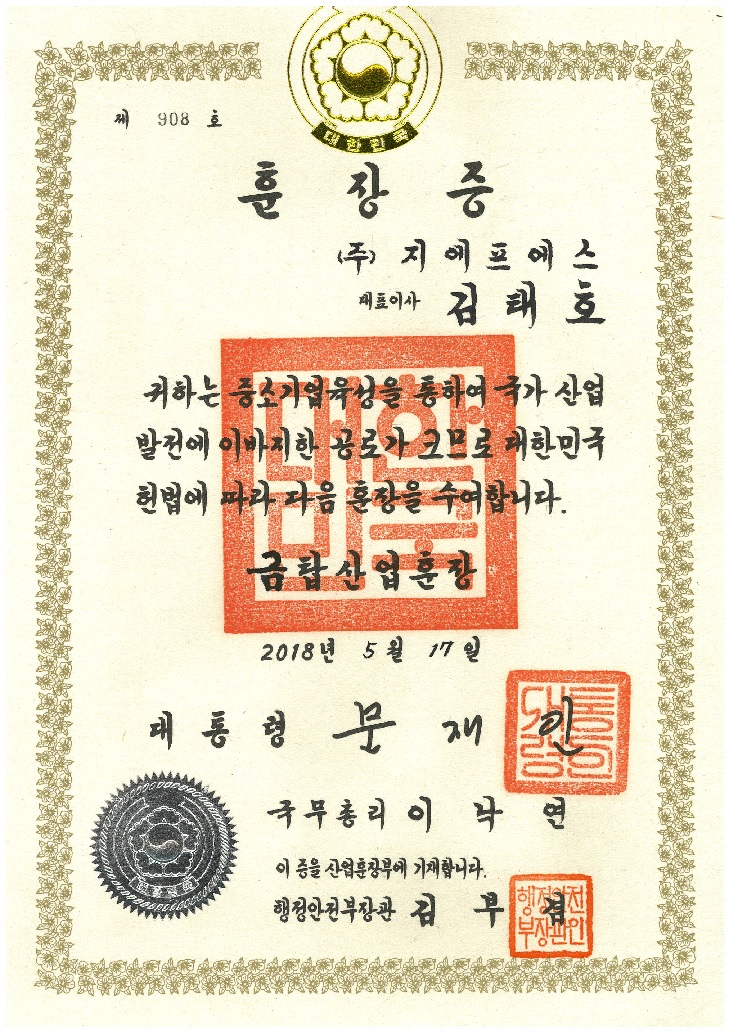 대한민국
제 908 호
훈 장 증
(주) 지에프에스
대표이사 김 태 호
귀하는 중소기업육성을 통하여 국가 산업
발전에 이바지한 공로가 크므로 대한민국
헌법에 따라 다음 훈장을 수여합니다.
금탑산업훈장
대한민국
2018년 5월 17일
대 통 령 문 재 인
대통령의인
국무총리 이 낙 연
이 증을 산업훈장부에 기재합니다.
행정안전부장관 김 부 겸
행정안전부장관인
대한민국